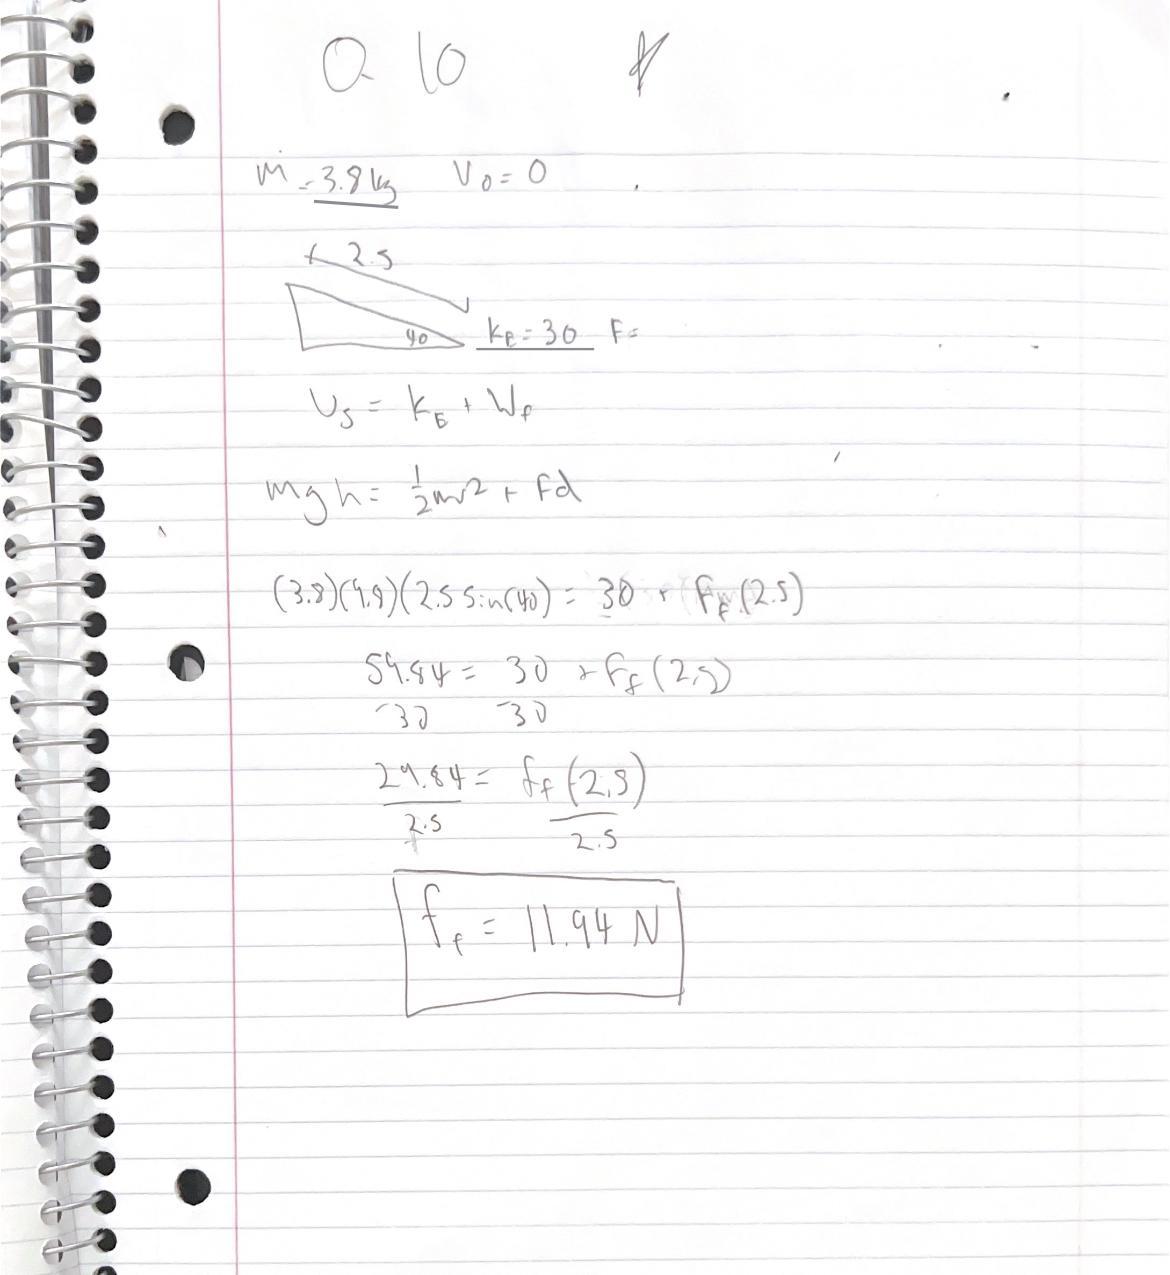 Q 10
m = 3.8 kg V₀ = 0
2.5
40 KE = 30 F=
Ug = KE + Wf
mgh = ½mv² + Fd
(3.8)(9.8)(2.5 sin(40)) = 30 + Ff (2.5)
59.84 = 30 + Ff (2.5)
-30 -30
29.84 = ff (2.5)
2.5 2.5
ff = 11.94 N